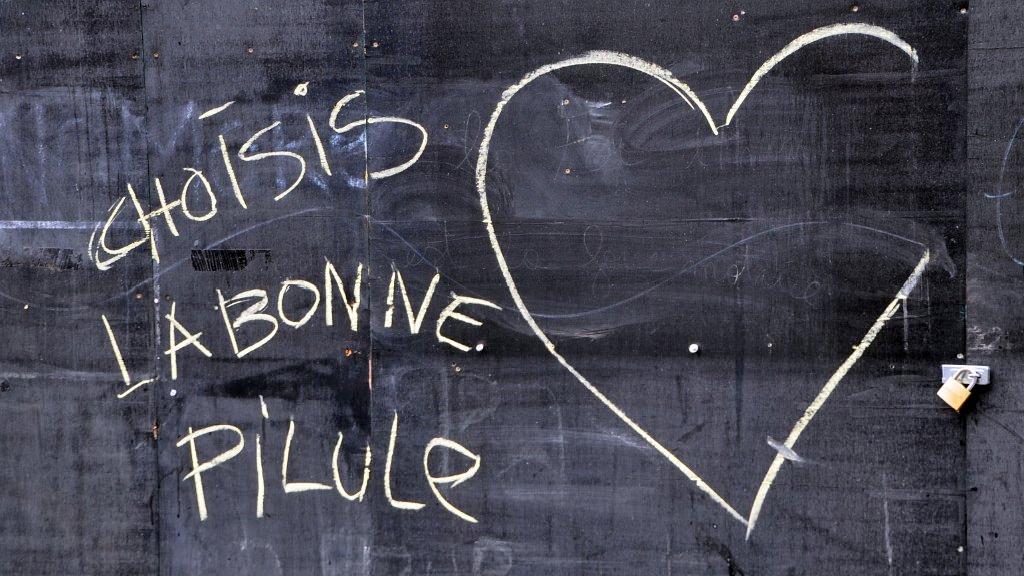 CHOISIS
LA BONNE
PILULE